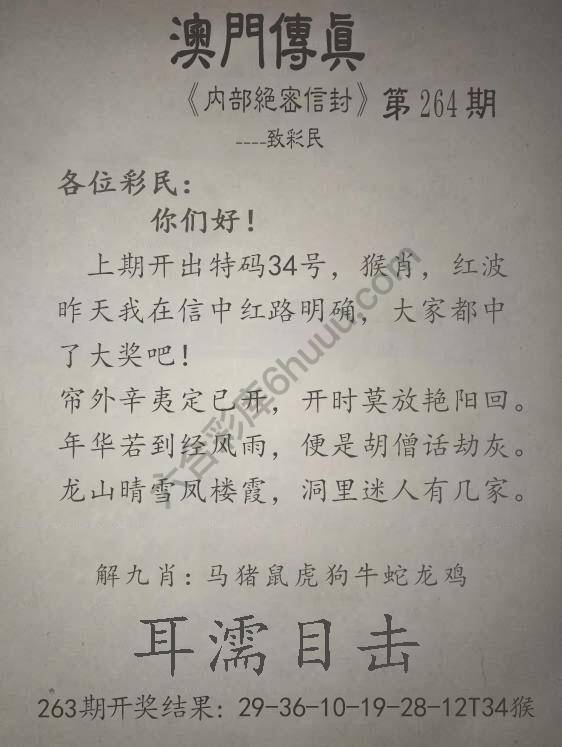 澳門傳眞
《内部絕密信封》第264期
----致彩民
各位彩民：
你们好！
上期开出特码34号，猴肖，红波
昨天我在信中红路明确，大家都中
了大奖吧！
帘外辛夷定已开，开时莫放艳阳回。
年华若到经风雨，便是胡僧话劫灰。
龙山晴雪凤楼霞，洞里迷人有几家。
解九肖：马猪鼠虎狗牛蛇龙鸡
耳濡目击
263期开奖结果：29-36-10-19-28-12T34猴
六合彩库6huuu.com